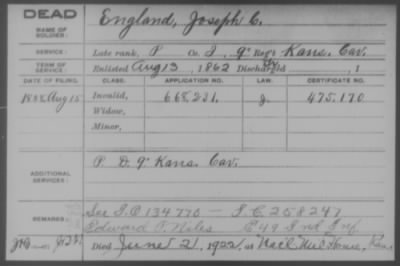 DEAD
NAME OF SOLDIER:
England, Joseph C.
SERVICE:
Late rank, P Co. I, 9" Reg't Kans. Cav.
TERM OF SERVICE:
Enlisted Aug 13, 1862 Discharged, 1
DATE OF FILING. CLASS. APPLICATION NO. LAW. CERTIFICATE NO.
1888 Aug 15 Invalid, 668,231. J. 475.170
Widow,
Minor,
ADDITIONAL SERVICES:
P. D. 9" Kans. Cav.
REMARKS:
See I.O 134770 — I.C. 258247
Edward P. Niles E 49 Ind Inf
Died June 21, 1922, at Nat'l Mil Home, Kans